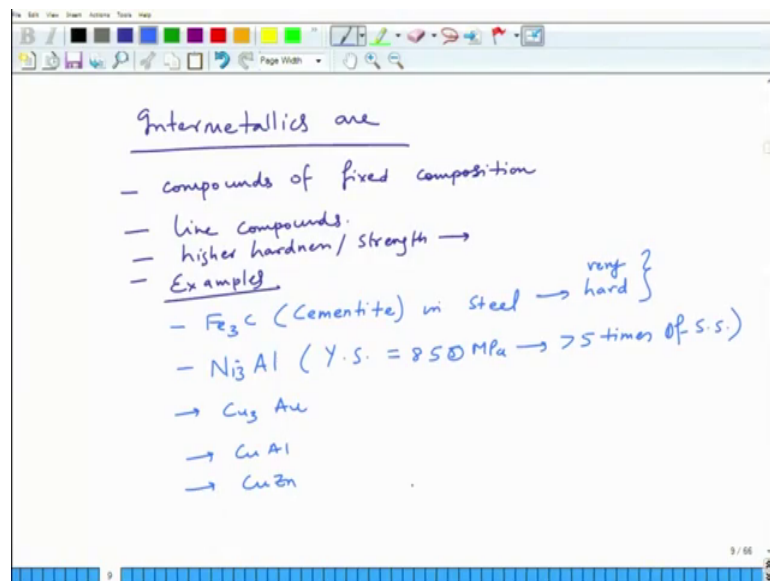 File Edit View Insert Actions Tools Help
B I
Page Width
Intermetallics are
– compounds of fixed composition
– Line compounds.
– higher hardness/ strength →
– Examples
– Fe3C (Cementite) in steel → very hard }
– Ni3Al ( Y.S. = 850 MPa → >5 times of S.S.)
→ Cu3 Au
→ CuAl
→ CuZn
9 / 66
9